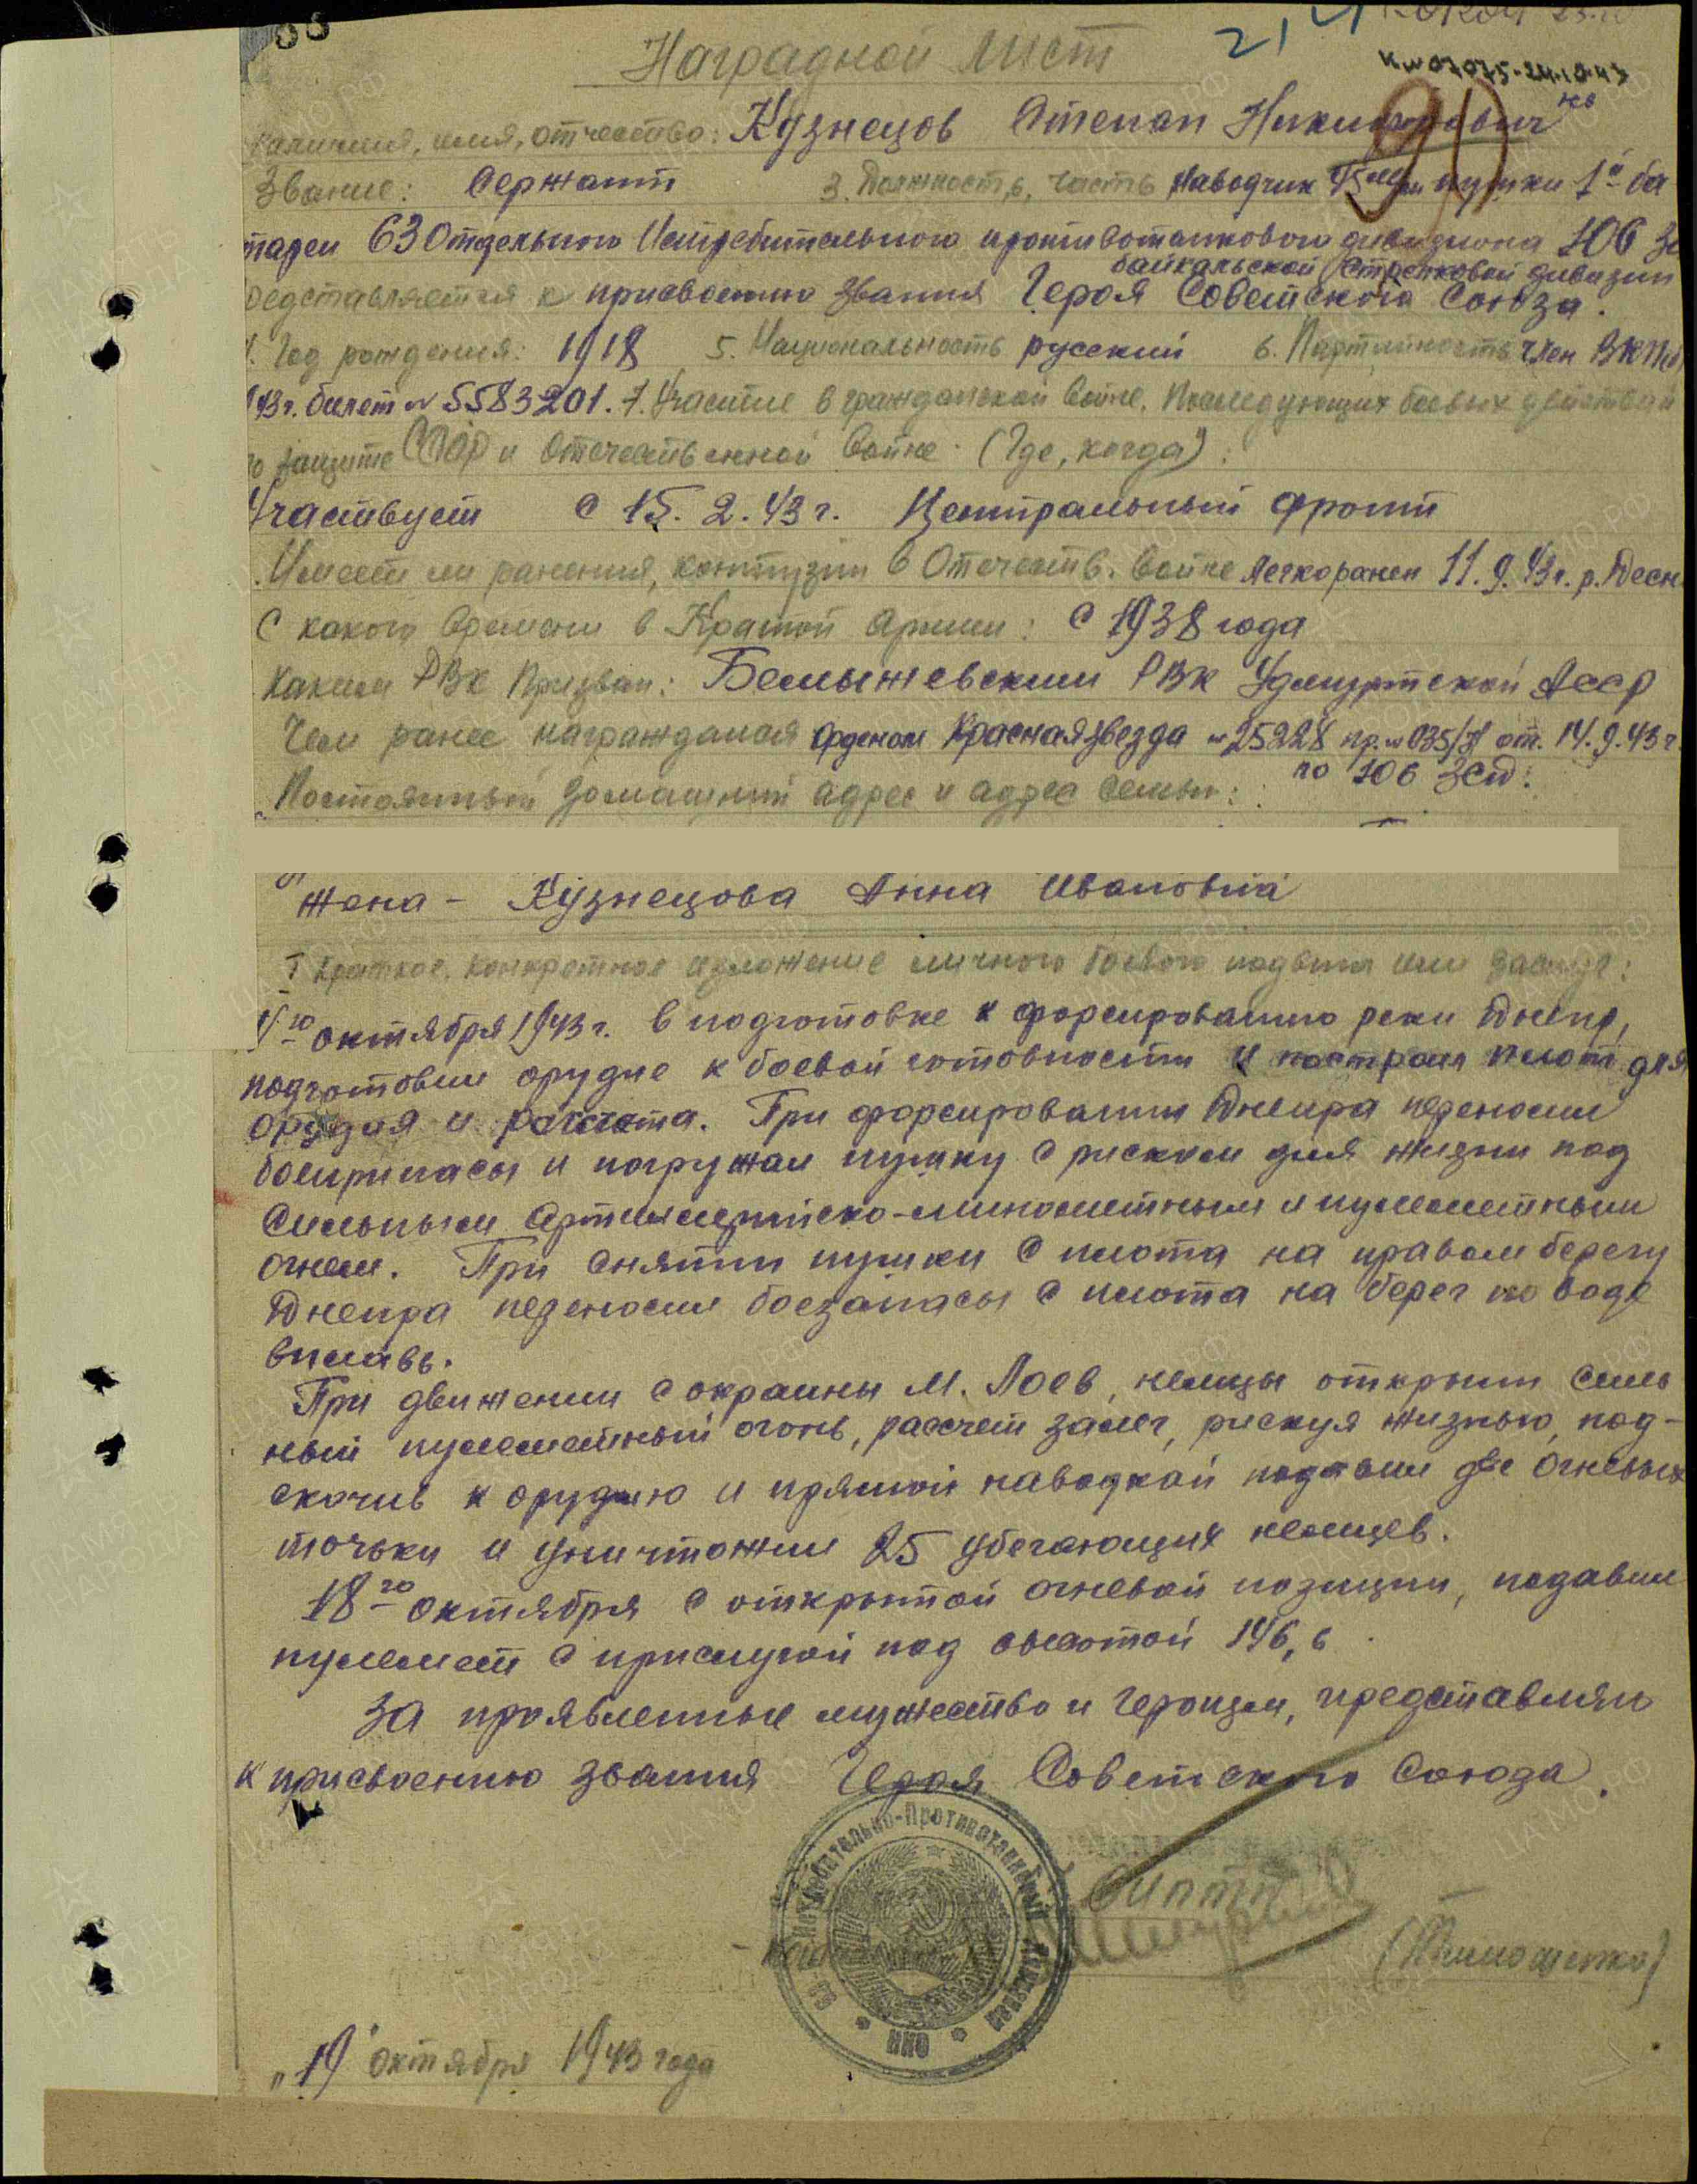 Наградной лист
Фамилия, имя, отчество: Кузнецов Степан Никифорович
Звание: Сержант 3. Должность, часть Наводчик 45 мм пушки 1й ба
тареи 63 Отдельного Истребительного противотанкового дивизиона 106 За
байкальской стрелковой дивизии
редставляется к присвоению звания Героя Советского Союза.
4. Год рождения: 1918 5. Национальность русский 6. Партийность член ВКП(б)
43г. билет № 5583201. 7. Участие в гражданской войне, последующих боевых действий
по защите СССР и Отечественной войне. (Где, когда):
Участвует с 15. 2. 43 г. Центральный фронт
Имеет ли ранения, контузии в Отечеств. войне легко ранен 11.9.43г. р. Десн
С какого времени в Красной Армии: с 1938 года
Каким РВК Призван: Бемыжевским РВК Удмуртской АССР
Чем ранее награждался орденом Красная звезда № 25228 пр. № 035/Н от. 14.9.43г.
по 106 ЗСД.
Постоянный домашний адрес и адрес семьи:
жена - Кузнецова Анна Ивановна
I Краткое, конкретное изложение личного боевого подвига или заслуг:
октября 1943г. в подготовке к форсированию реки Днепр,
подготовил орудие к боевой готовности и построил плот для
орудия и расчета. При форсировании Днепра переносил
боеприпасы и погружал пушку с риском для жизни под
сильным Артиллерийско-минометным и пулеметным
огнем. При снятии пушки с плота на правом берегу
Днепра переносил боезапасы с плота на берег по воде
вплавь.
При движении с окраины М. Лоев, немцы открыли силь
ный пулеметный огонь, рассчет залег, рискуя жизнью, под-
скочив к орудию и прямой наводкой подавил две огневых
точьки и уничтожил 25 убегающих немцев.
18го октября с открытой огневой позиции, подавил
пулемет с прислугой под высотой 146,6
За проявленные мужество и героизм, представлян
к присвоению звания Героя Советского Союза.
(Тимошенко)
"19" октября 1943 года